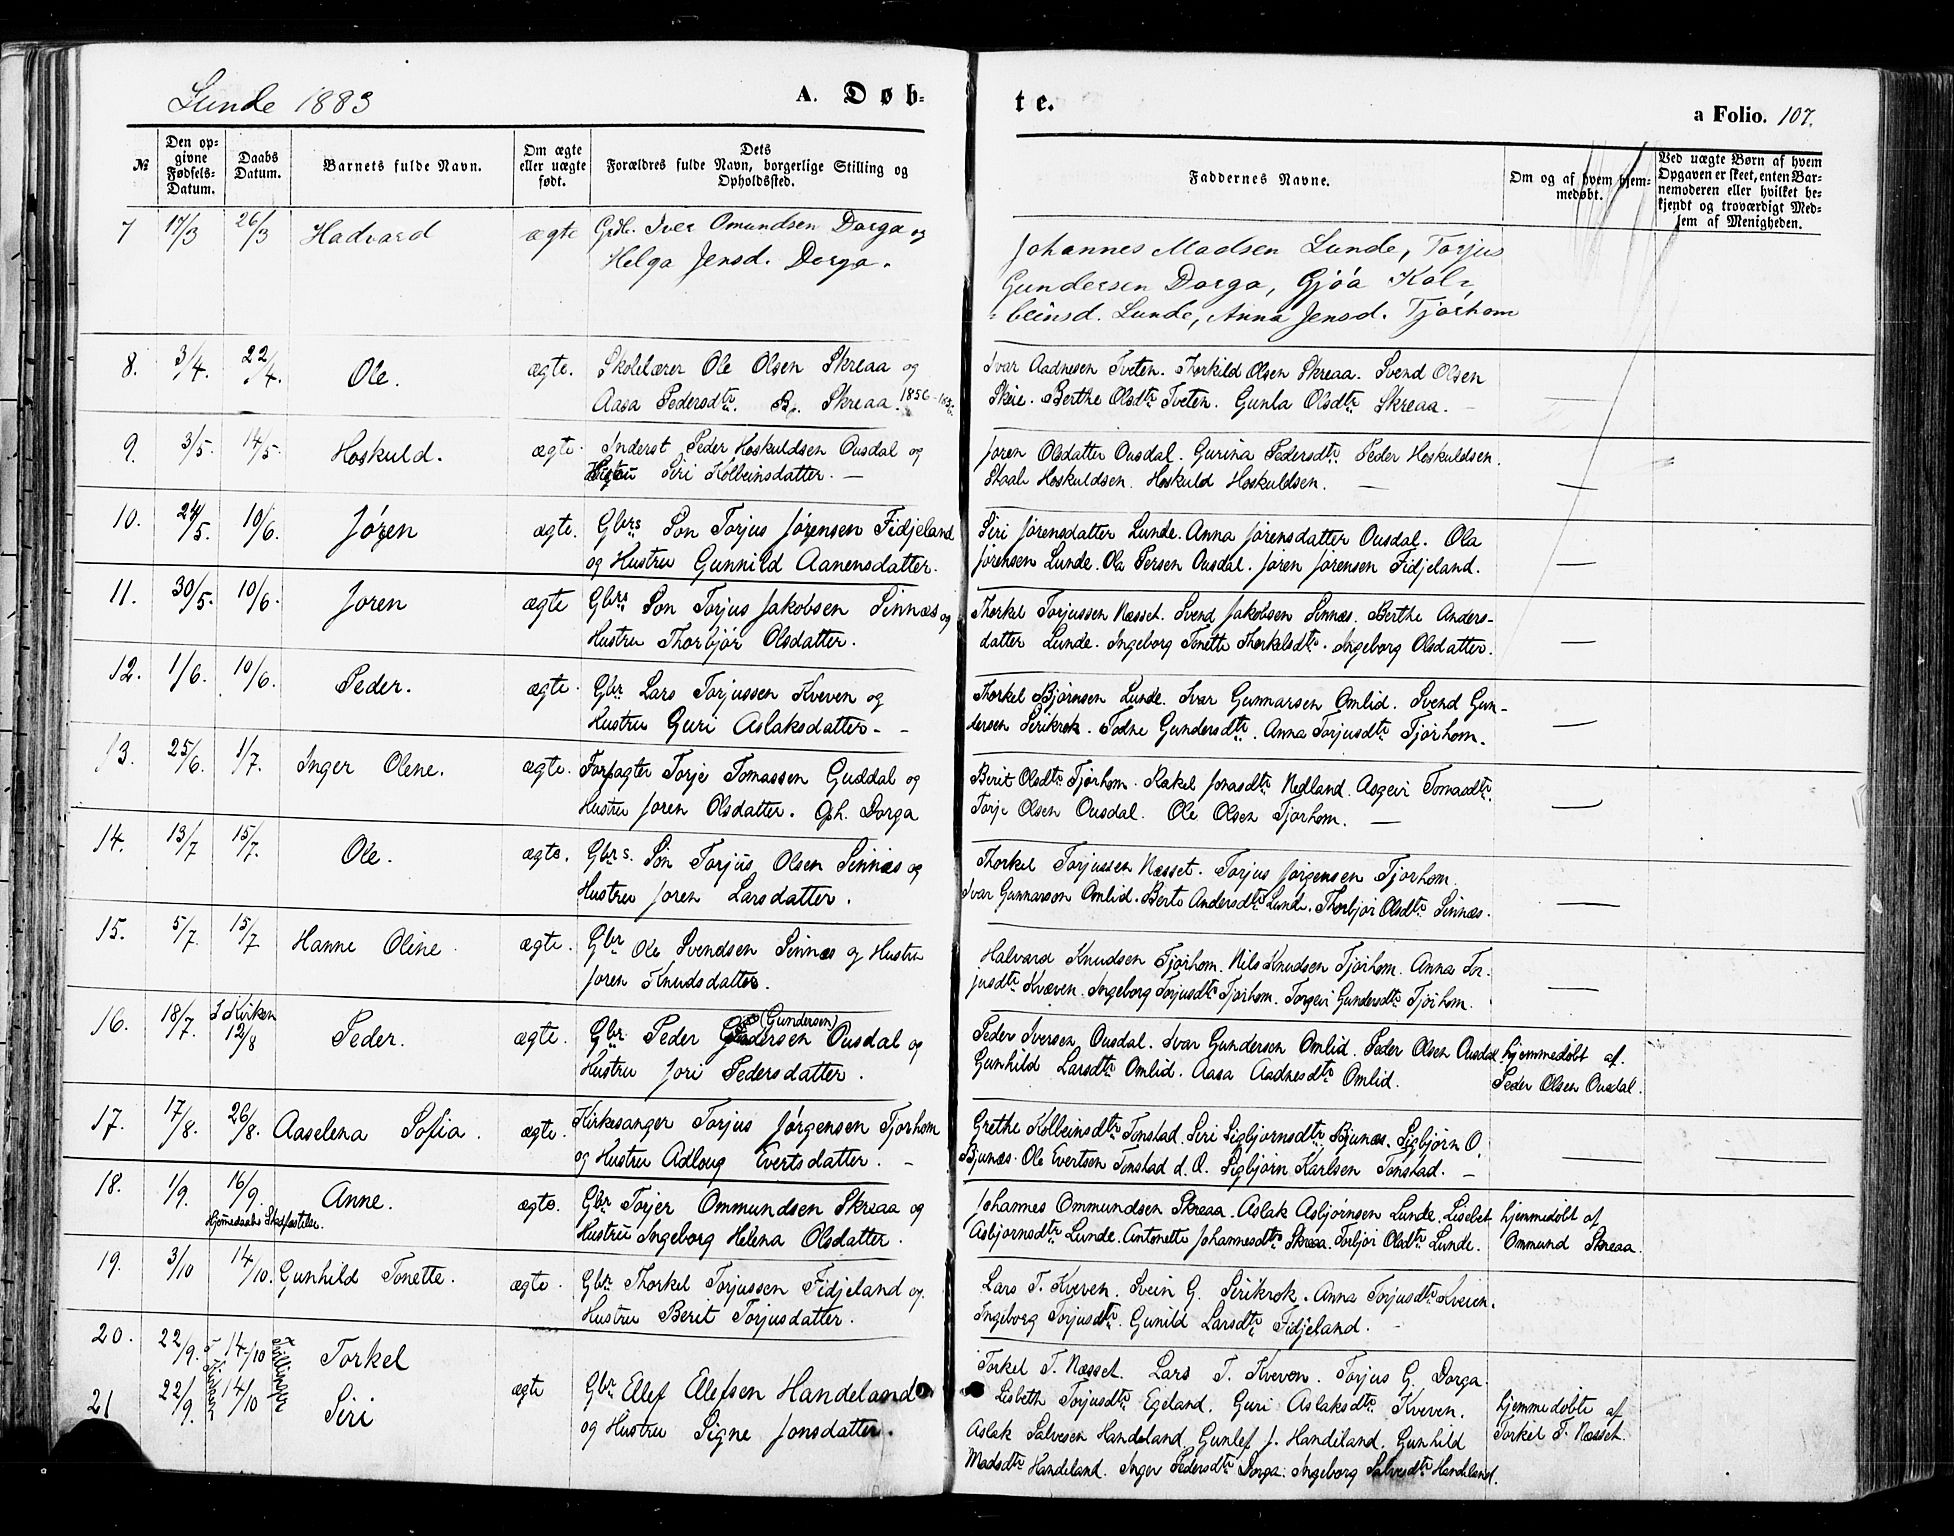 Lunde 1883
A. Døb-
te.
a Folio. 107.
№
Den op-
givne
Fødsels-
Datum.
Daabs
Datum.
Barnets fulde Navn.
Om ægte
eller uægte
født.
Dets
Forældres fulde Navn, borgerlige Stilling og
Opholdssted.
Faddernes Navne.
Om og af hvem hjem-
medøbt.
Ved uægte Børn af hvem
Opgaven er skeet, enten Bar-
nemoderen eller hvilket be-
kjendt og troværdigt Med-
lem af Menigheden.
7 17/3 26/3 Hadvard ægte Grdb. Iver Omundsen Dorga og
Helga Jensd. Dorga.
Johannes Madsen Lunde, Torjus
Gundersen Dorga, Gjøa Kol-
beinsd. Lunde, Anna Jensd. Tjørhom
8. 3/4. 22/4. Ole. ægte. Skolelærer Ole Olsen Skreaa og
Aasa Pedersdtr. Skreaa. 1856
Ivar Aadnesen Tveten. Thorkild Olsen Skreaa. Svend Olsen
Skeie. Berthe Olsdtr Tveten. Gunla Olsdtr Skreaa. —
9. 3/5. 14/5. Hoskuld. ægte. Inderst Peder Hoskuldsen Ousdal og
Hustru Siri Kolbeinsdatter. —
Joren Olsdatter Ousdal. Gurina Pedersdtr Peder Hoskuldsen.
Staale Hoskuldsen. Hoskuld Hoskuldsen. —
10. 24/5. 10/6. Jørgen ægte. Gbrs Søn Torjus Jørgensen Fidjeland
og Hustru Gunnild Aanensdatter.
Siri Jørensdatter Lunde. Anna Jørensdatter Ousdal. Ola
Jørensen Lunde. Ola Persen Ousdal. Jøren Jørensen Fidjeland.
11. 30/5. 10/6. Joren ægte Gbrs Søn Torjus Jakobsen Sinnæs og
Hustru Thorbjør Olsdatter.
Thorkel Torjussen Næsset. Svend Jakobsen Sinnæs. Berthe Anders-
datter Lunde. Ingeborg Tonette Thorkelsdtr. Ingeborg Olsdatter.
12. 1/6. 10/6. Peder. ægte. Gbr Lars Torjussen Kveven og
Hustru Guri Aslaksdatter. -
Thorkel Bjørnsen Lunde. Ivar Gunnarsen Omlid. Svend Gun-
dersen Sirikrok. Todne Gundersdtr. Anna Torjusdtr Tjørhom.
13. 25/6. 1/7. Inger Olene. ægte. Forpagter Torje Tomassen Guddal og
Hustru Joren Olsdatter. Oph. Dorga
Berit Olsdtr Tjørhom. Rakel Jonasdtr Nedland. Asgeir Tomasdtr.
Torje Olsen Ousdal. Ole Olsen Tjørhom. —
14. 13/7 15/7. Ole. ægte. Gbrs. Søn Torjus Olsen Sinnæs og
Hustru Joren Larsdatter.
Thorkel Torjussen Næsset. Torjus Jørgensen Tjorhom.
Ivar Gunnarson Omlid. Berte Andersdtr Lunde. Thorbjør Olsdtr Sinnæs.
15. 5/7. 15/7 Hanne Oline. ægte. Gbr Ole Svendsen Sinnæs og Hustru
Joren Knudsdatter.
Halvard Knudsen Tjørhom. Nils Knudsen Tjørhom. Anna Tor-
jusdtr Kvæven. Ingeborg Torjusdtr Tjørhom. Torgeir Gundersdtr Tjørhom.
16. 18/7. I Kirken 12/8 Peder. ægte. (Gundersen)
Gbr Peder Ousdal og
Hustru Jori Pedersdatter.
Peder Iversen Ousdal. Ivar Gundersen Omlid. Peder Olsen Ousdal.
Gunhild Larsdtr Omlid. Aasa Aadnesdtr Omlid.
hjemmedøbt af
Peder Olsen Ousdal.
17. 17/8. 26/8. Aaselena Sofia. ægte. Kirkesanger Torjus Jørgensen Tjorhom
og Hustru Adloug Evertsdatter. —
Grethe Kolbeinsdtr Tonstad. Siri Sigbjornsdtr Bjunæs. Sigbjørn O.
Bjunæs. Ole Evertsen Tonstad d. O. Sigbjørn Karlsen Tonstad. —
18. 1/9. 16/9. Anne. ægte. Gbr Torjer Ommundsen Skreaa og
Hustru Ingeborg Helena Olsdatter.
Johannes Ommundsen Skreaa. Aslak Asbjørnsen Lunde. Lisebet
Asbjornsdtr Lunde. Antonette Johannesdtr Skreaa. Torbjør Olsdtr Lunde.
hjemmedøbt af
Ommund Skreaa.
19. 3/10 14/10. Gunhild Tonette. ægte. Gbr Thorkel Torjussen Fidjeland og
Hustru Berit Torjusdatter.
Lars T. Kveven. Svein G. Sirikrok. Anna Torjusdtr Kveven.
Ingeborg Torjusdtr. Gunild Larsdtr Fidjeland.
20. 22/9. 14/10 Torkel
21 22/9. 14/10 Siri
I Kirken
Tvillinger
ægte Gbr Ellef Ellefsen Handeland
og Hustru Signe Jonsdatter.
Torkel T. Næsset. Lars T. Kveven. Torjus G. Dorga.
Lisbeth Torjusdtr Egeland. Guri Aslaksdtr Kveven.
Aslak Salvesen Handeland. Gunlef J. Handeland. Gunhild
Madsdtr Handeland. Inger Pedersdtr Dorga. Ingeborg Salvesdtr Handeland.
hjemmedøbte af
Torkel T. Næsset.